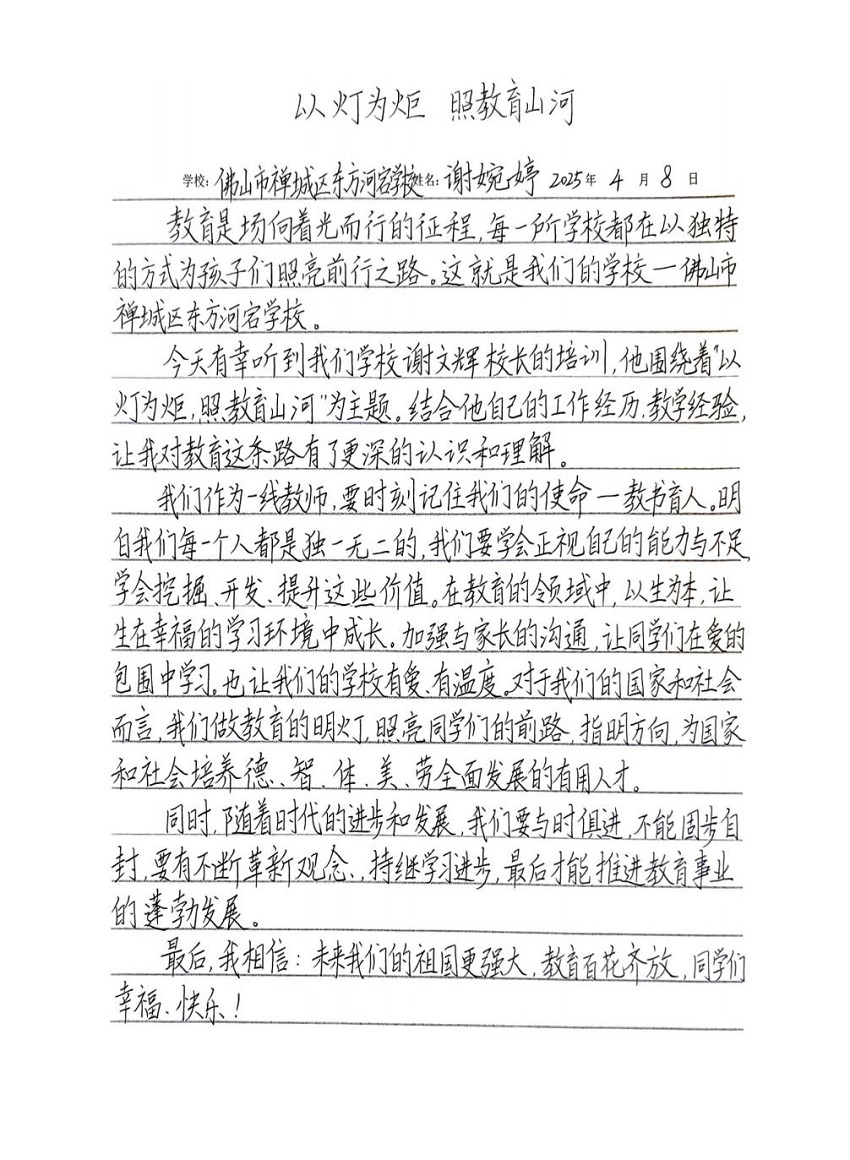 以灯为炬 照教育山河
学校：佛山市禅城区东方河宕学校姓名：谢婉婷 2025年 4 月 8 日
教育是场向着光而行的征程，每一所学校都在以独特
的方式为孩子们照亮前行之路。这就是我们的学校—佛山市
禅城区东方河宕学校。
今天有幸听到我们学校谢文辉校长的培训，他围绕着“以
灯为炬，照教育山河”为主题。结合他自己的工作经历、教学经验，
让我对教育这条路有了更深的认识和理解。
我们作为一线教师，要时刻记住我们的使命—教书育人。明
白我们每一个人都是独一无二的，我们要学会正视自己的能力与不足，
学会挖掘、开发、提升这些价值。在教育的领域中，以生为本，让
生在幸福的学习环境中成长。加强与家长的沟通，让同学们在爱的
包围中学习。也让我们的学校有爱、有温度。对于我们的国家和社会
而言，我们做教育的明灯，照亮同学们的前路，指明方向，为国家
和社会培养德、智、体、美、劳全面发展的有用人才。
同时，随着时代的进步和发展，我们要与时俱进，不能固步自
封，要有不断革新观念、，持继学习进步，最后才能推进教育事业
的蓬勃发展。
最后，我相信：未来我们的祖国更强大，教育百花齐放，同学们
幸福、快乐！